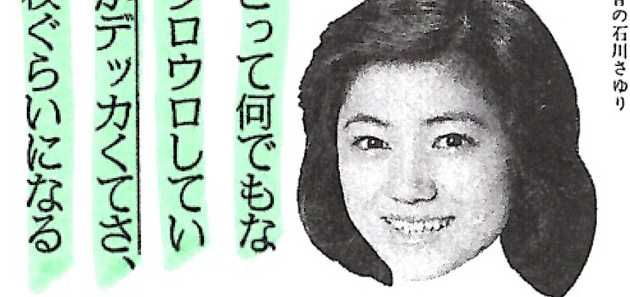 の石川さゆり
とって何でもな
ウロウロしてい
がデッカくてさ、
ぐらいになる